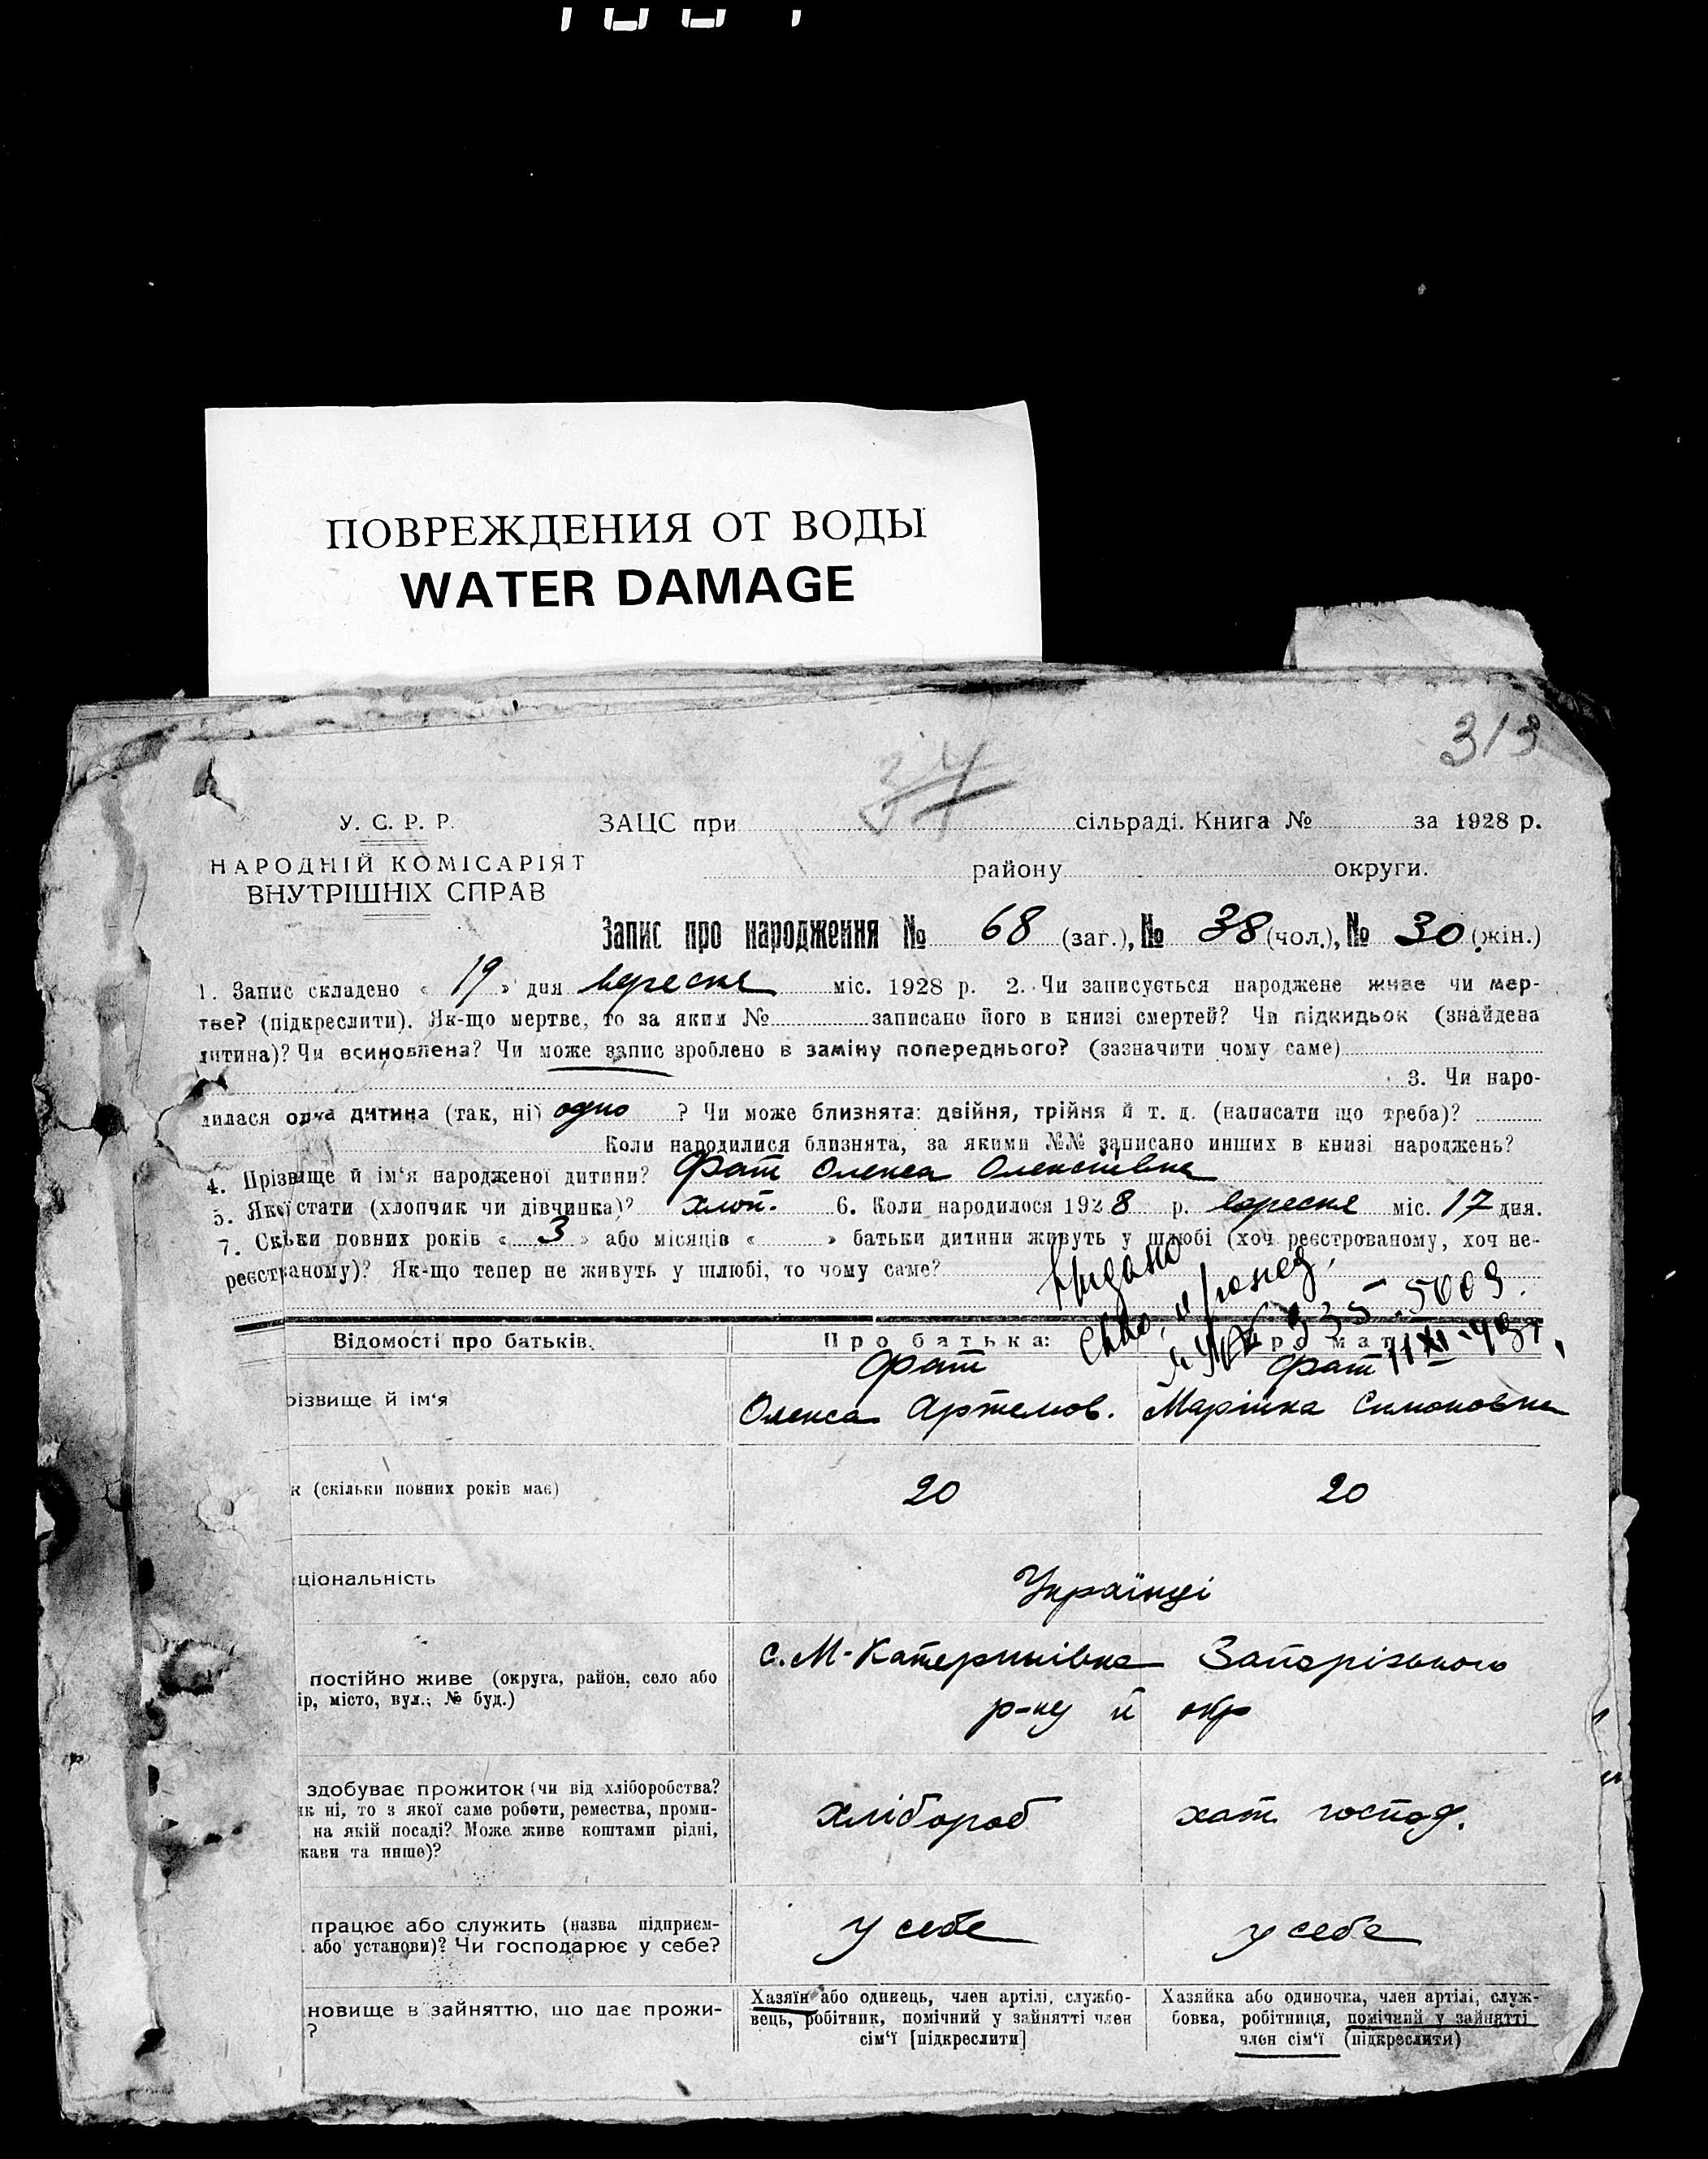 ПОВРЕЖДЕНИЯ ОТ ВОДЫ
WATER DAMAGE
313
37
У. С. Р. Р.
НАРОДНІЙ КОМІСАРІЯТ
ВНУТРІШНІХ СПРАВ
ЗАЦС при сільраді. Книга № за 1928 р.
району округи.
Запис про народження № 68 (заг.), № 38 (чол.), № 30 (жін.)
1. Запис складено « 19 » дня вересня міс. 1928 р. 2. Чи записується народжене живе чи мер-
тве? (підкреслити). Як-що мертве, то за яким № записано його в книзі смертей? Чи підкидьок (знайдена
дитина)? Чи всиновлена? Чи може запис зроблено в заміну попереднього? (зазначити чому саме)
3. Чи наро-
дилася одна дитина (так, ні) одно ? Чи може близнята: двійня, трійня й т. д. (написати що треба)?
Коли народилися близнята, за якими №№ записано инших в книзі народжень?
4. Прізвище й ім'я народженої дитини? Фат Олекса Олексіївна
5. Якої стати (хлопчик чи дівчинка)? хлоп. 6. Коли народилося 1928 р. вересня міс. 17 дня.
7. Скльки повних років « 3 » або місяців « » батьки дитини живуть у шлюбі (хоч реєстрованому, хоч не-
реєстраному)? Як-що тепер не живуть у шлюбі, то чому саме?
Видано
335-5009.
11 XI-49 г.
Відомості про батьків. Про батька: Про мат
різвище й ім'я Фат Олекса Артемов. Фат Марішка Симоновна
к (скільки повних років має) 20 20
ціональність Українці
постійно живе (округа, район, село або
ір, місто, вул.; № буд.)
с. М-Катеринівка Запорізького
р-ну й окр
здобуває прожиток (чи від хліборобства?
як ні, то з якої саме роботи, ремества, проми-
на якій посаді? Може живе коштами рідні,
жави та инше)?
хлібороб хат. господ.
працює або служить (назва підприєм-
або установи)? Чи господарює у себе?
у себе у себе
новище в зайняттю, що дає прожи-
?
Хазяїн або одинець, член артілі, службо-
вець, робітник, помічний у зайнятті член
сім'ї [підкреслити]
Хазяйка або одиночка, член артілі, служ-
бовка, робітниця, помічний у зайнятті
член сім'ї (підкреслити)